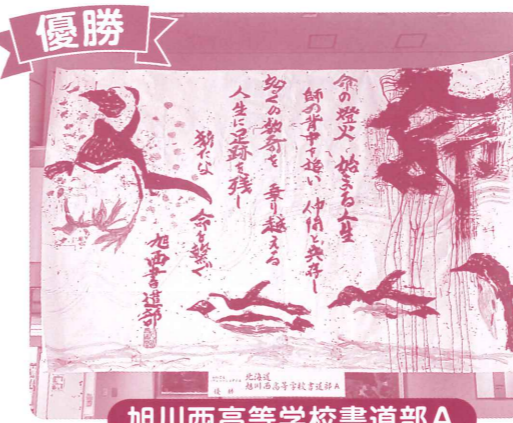 優勝
命の燈火 始まる人生
師の背中を追い 仲間と共存し
幾くの数奇を 乗り越える
人生に足跡を残し
新たな 命を繋ぐ
旭西書道部
北海道
旭川西高等学校書道部A
優勝
旭川西高等学校書道部A